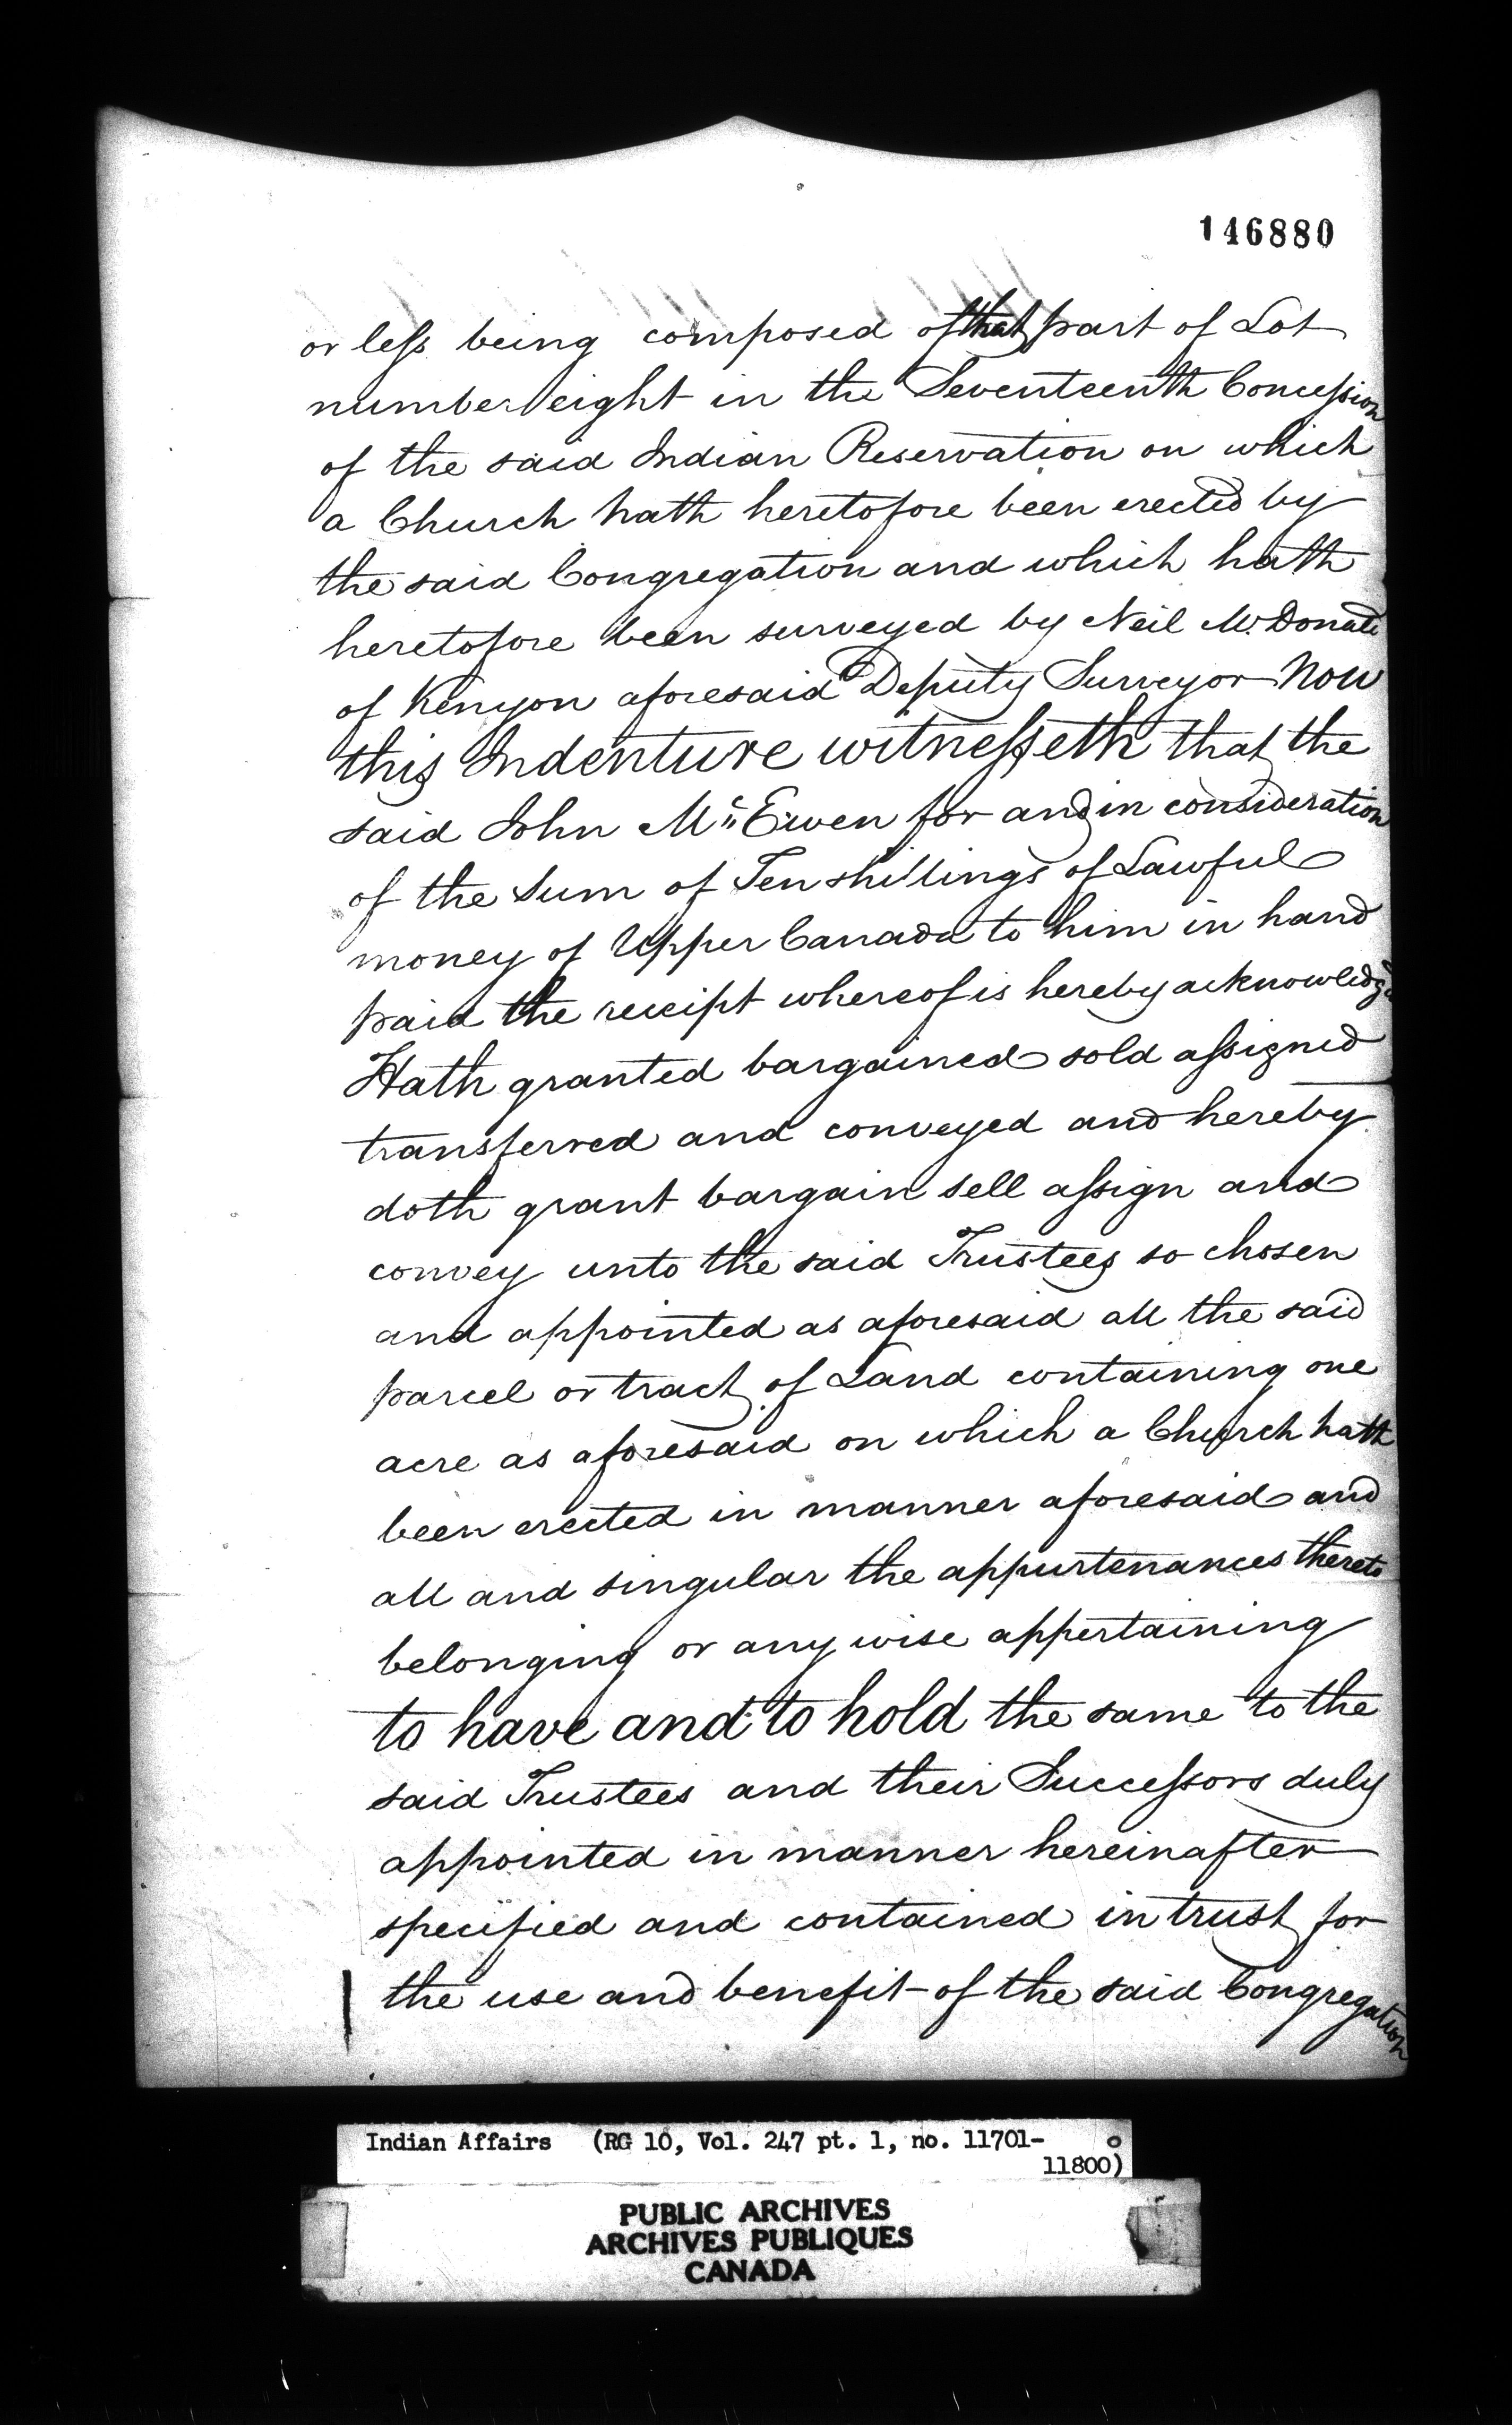 146880
or less being composed of that part of Lot
number eight in the Seventeenth Concession
of the said Indian Reservation on which
a Church hath heretofore been erected by
the said Congregation and which hath
heretofore been surveyed by Neil McDonald
of Kenyon aforesaid Deputy Surveyor Now
this Indenture witnesseth that the
said John McEwen for and in consideration
of the Sum of Ten shillings of Lawful
money of Upper Canada to him in hand
paid the receipt whereof is hereby acknowledgd
Hath granted bargained sold assigned
transferred and conveyed and hereby
doth grant bargain sell assign and
convey unto the said Trustees so chosen
and appointed as aforesaid all the said
parcel or tract of Land containing one
acre as aforesaid on which a Church hath
been erected in manner aforesaid and
all and singular the appurtenances thereto
belonging or any wise appertaining
to have and to hold the same to the
said Trustees and their Successors duly
appointed in manner hereinafter
specified and contained in trust for
the use and benefit of the said Congregation
Indian Affairs (RG 10, Vol. 247 pt. 1, no. 11701-
11800)
PUBLIC ARCHIVES
ARCHIVES PUBLIQUES
CANADA